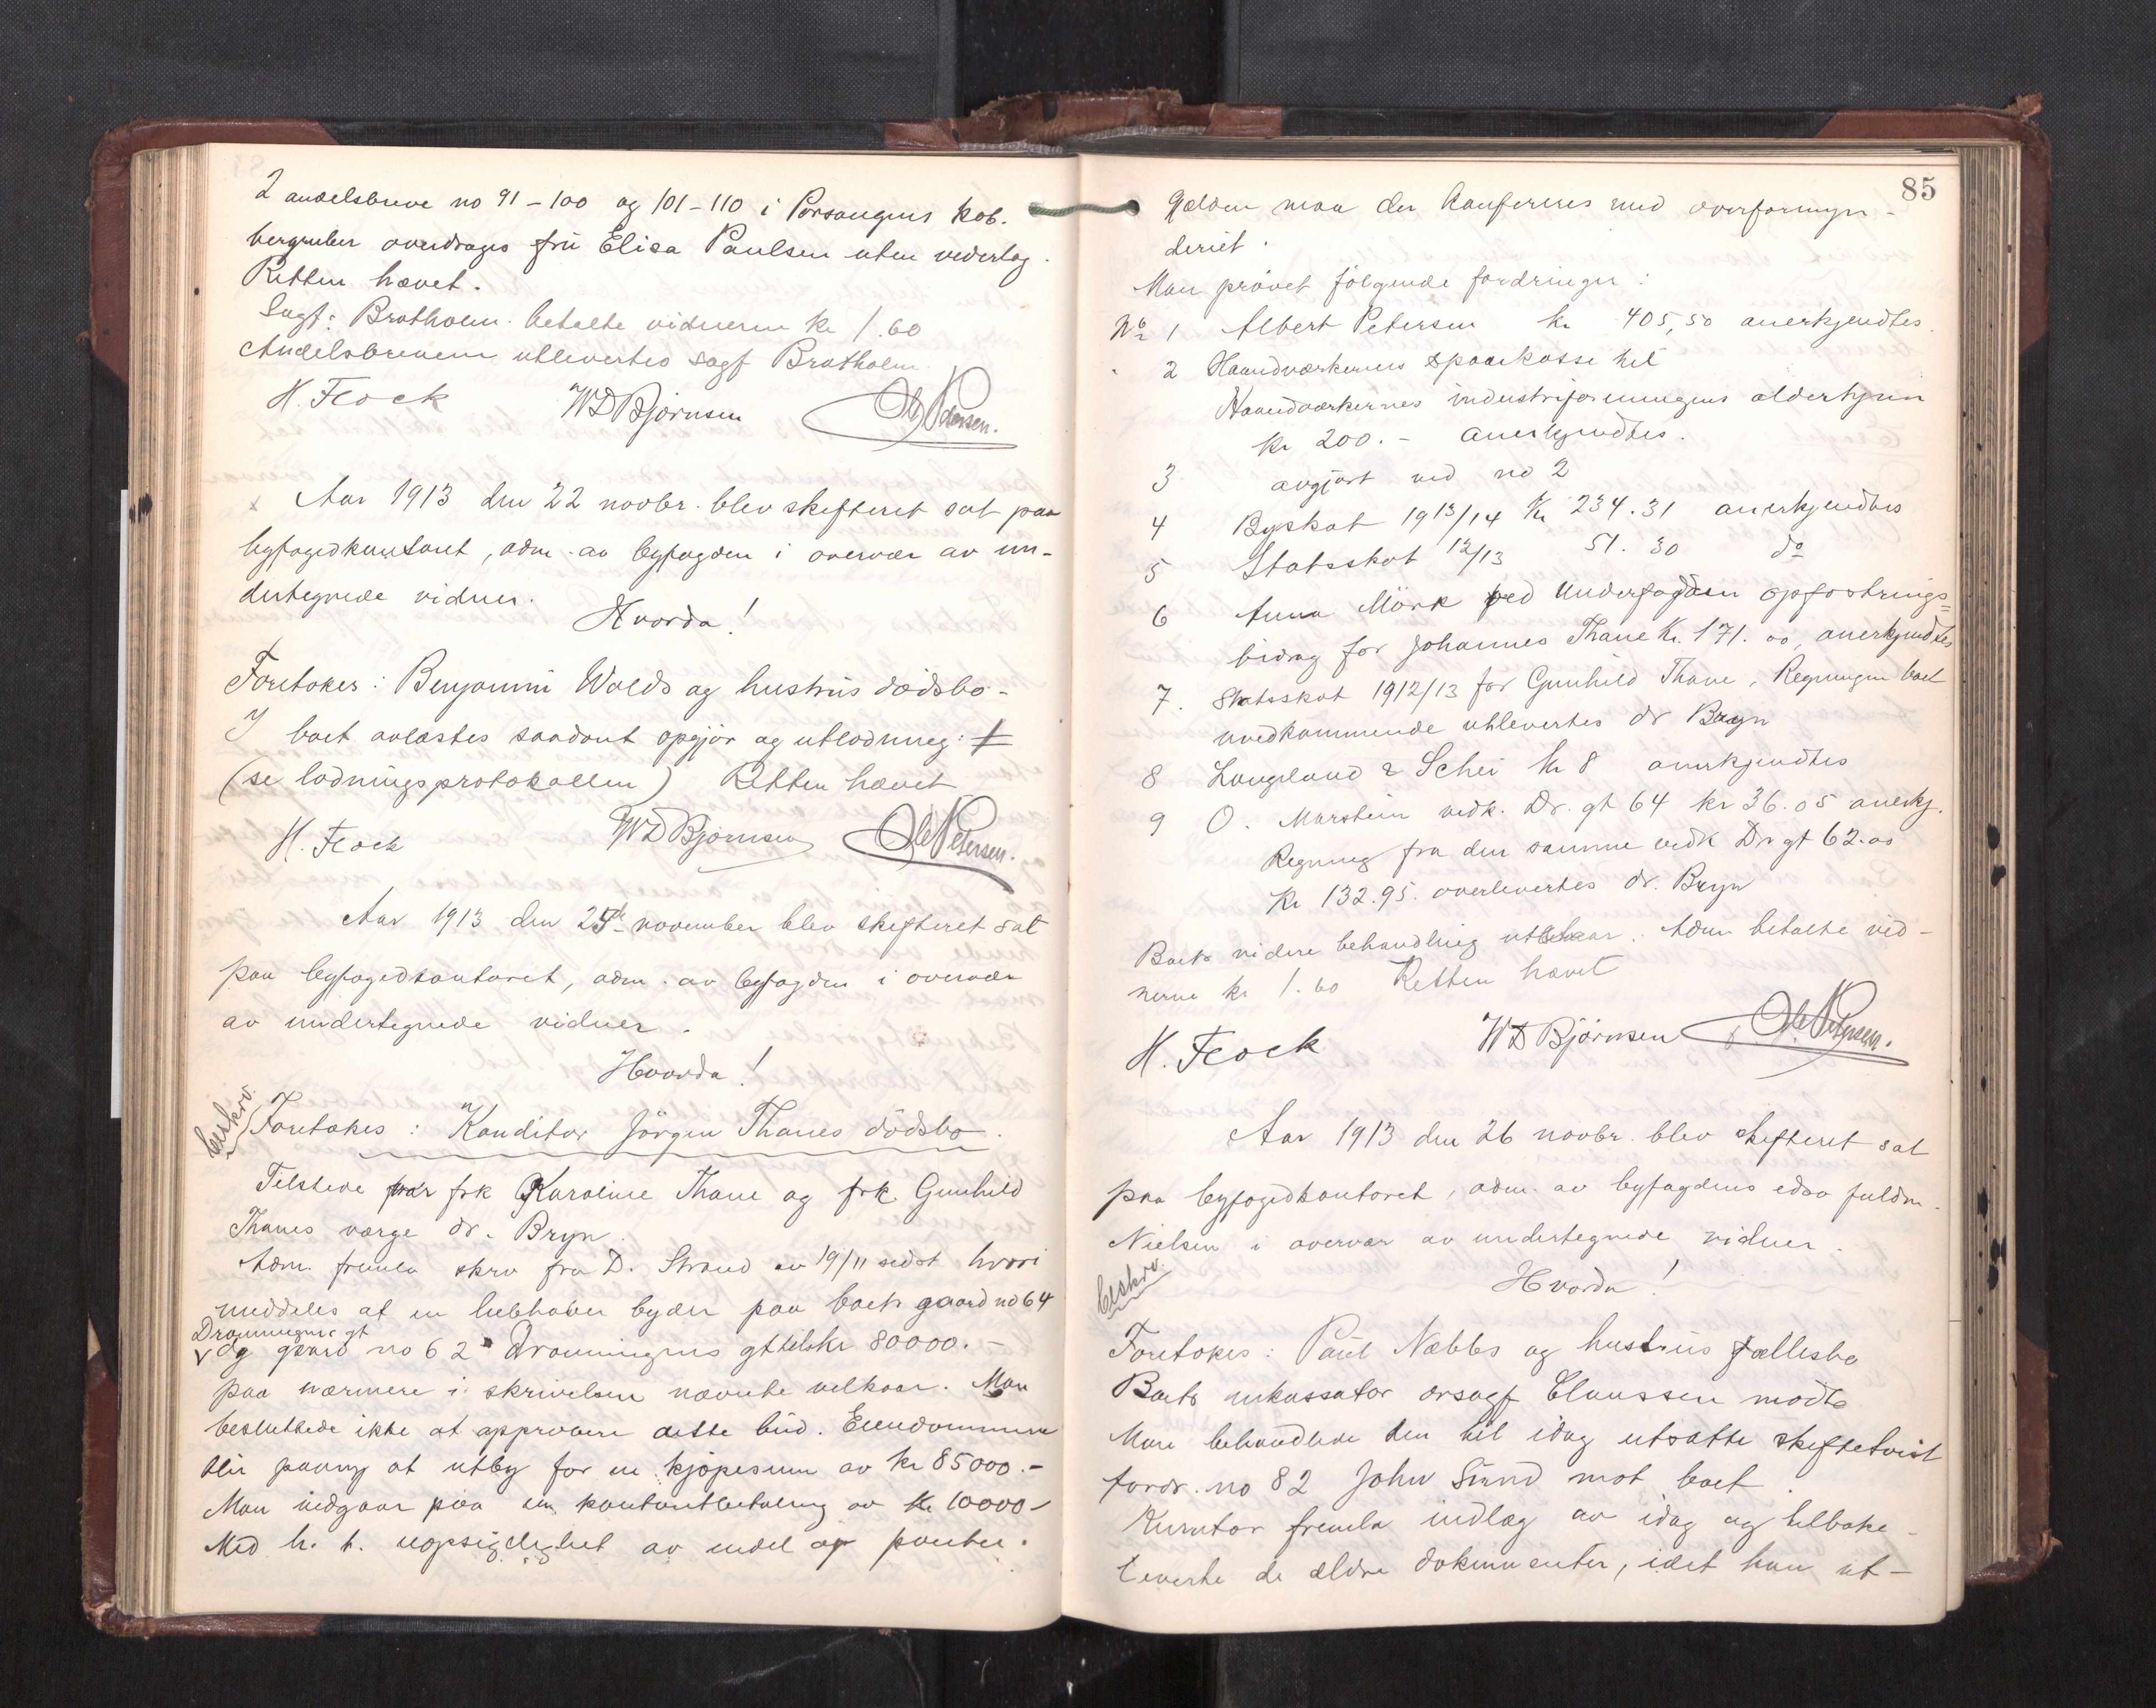 2 andelsbreve no 91-100 og 101-110 i Porsangens kob.
bergruber overdrages frü Elisa Paulsen uten vederlag.
Retten hævet.
Sagf: Bratholm betalte vidnerne kr 1.60
Andelsbrevene utlevertes sagf Bratholm.
H. Flock WD Bjørnsen Ole Petersen.
Aar 1913 den 22 novbr. blev skifteret sat paa
byfogedkontoret, adm. av byfogden i overvær av un-
dertegnede vidner.
Hvorda!
Foretokes: Benjamin Wolds og hustrus dødsbo-
I boet avlæstes saadant opgjør og utlodning:
(se lodningsprotokollen) Retten hævet
H. Flock WD Bjørnsen Ole Petersen.
Aar 1913 den 25de november blev skifteret sat
paa byfogedkontoret, adm. av byfogden i overvær
av undertegnede vidner.
Hvorda!
beskrv.
Foretokes: Konditor Jörgen Thanes dödsbo.
Tilstede var frk Karoline Thane og frk Gunhild
Thanes værge dr. Bryn.
Adm. fremla skrv fra D. Strand av 19/11 sidst hvori
meddeles at en liebhaber byder paa boets gaard no 64
Dronningens gt
og gaard no 62 Dronningens gt tils kr 80000.-
paa nærmere i skrivelsen nævnte velkaar. Man
besluttede ikke at approbere dette bud. Eiendommene
blir paany at utby for en kjøpesum av kr 85000.-
Man indgaar paa en kontantbetaling av kr 10000-
Med h. t. uopsigelighet av endel av panter.
85
gjælden maa der konfereres med overformyn-
deriet.
Man prøvet følgende fordringer:
No 1 Albert Petersen kr 405,50 anerkjendtes.
2 Haandværkernes sparekasse til
Haandværkernes industriforeningens alderhjem
kr 200.- anerkjendtes.
3 avgjort ved no 2
4 Byskat 1913/14 Kr 234.31 anerkjendtes
5 Statsskat 12/13 51.30 do
6 Anna Mörk ved Underfogden opfostrings-
bidrag for Johannes Thane Kr. 171.00, anerkjendtes
7. Statsskat 1912/13 for Gunhild Thane. Regningen boet
uvedkommende utlevertes dr Bryn
8 Langeland & Schei kr 8 anerkjendtes
9 O. Marstein vedk. Dr. gt 64 kr 36.05 anerkj.
Regning fra den samme vedk Dr gt 62.00
kr 132.95. overlevertes dr. Bryn
Boets videre behandling utstaar. Adm betalte vid-
nerne kr 1.60 Retten hævet
H. Flock WD Bjørnsen Ole Petersen.
Aar 1913 den 26 novbr. blev skifteret sat
paa byfogedkontoret, adm. av byfogdens edsv fuldm.
Nielsen i overvær av undertegnede vidner.
Hvorda!
beskrv.
Foretokes: Paul Næbbs og hustrus fællesbo
Boets inkassator orsagf Claussen mødte
Man behandlede den til idag utsatte skiftetvist
fordr. no 82 John Sund mot boet.
Kurator fremla indlæg av idag og tilbake-
leverte de ældre dokumenter, idet han ut-